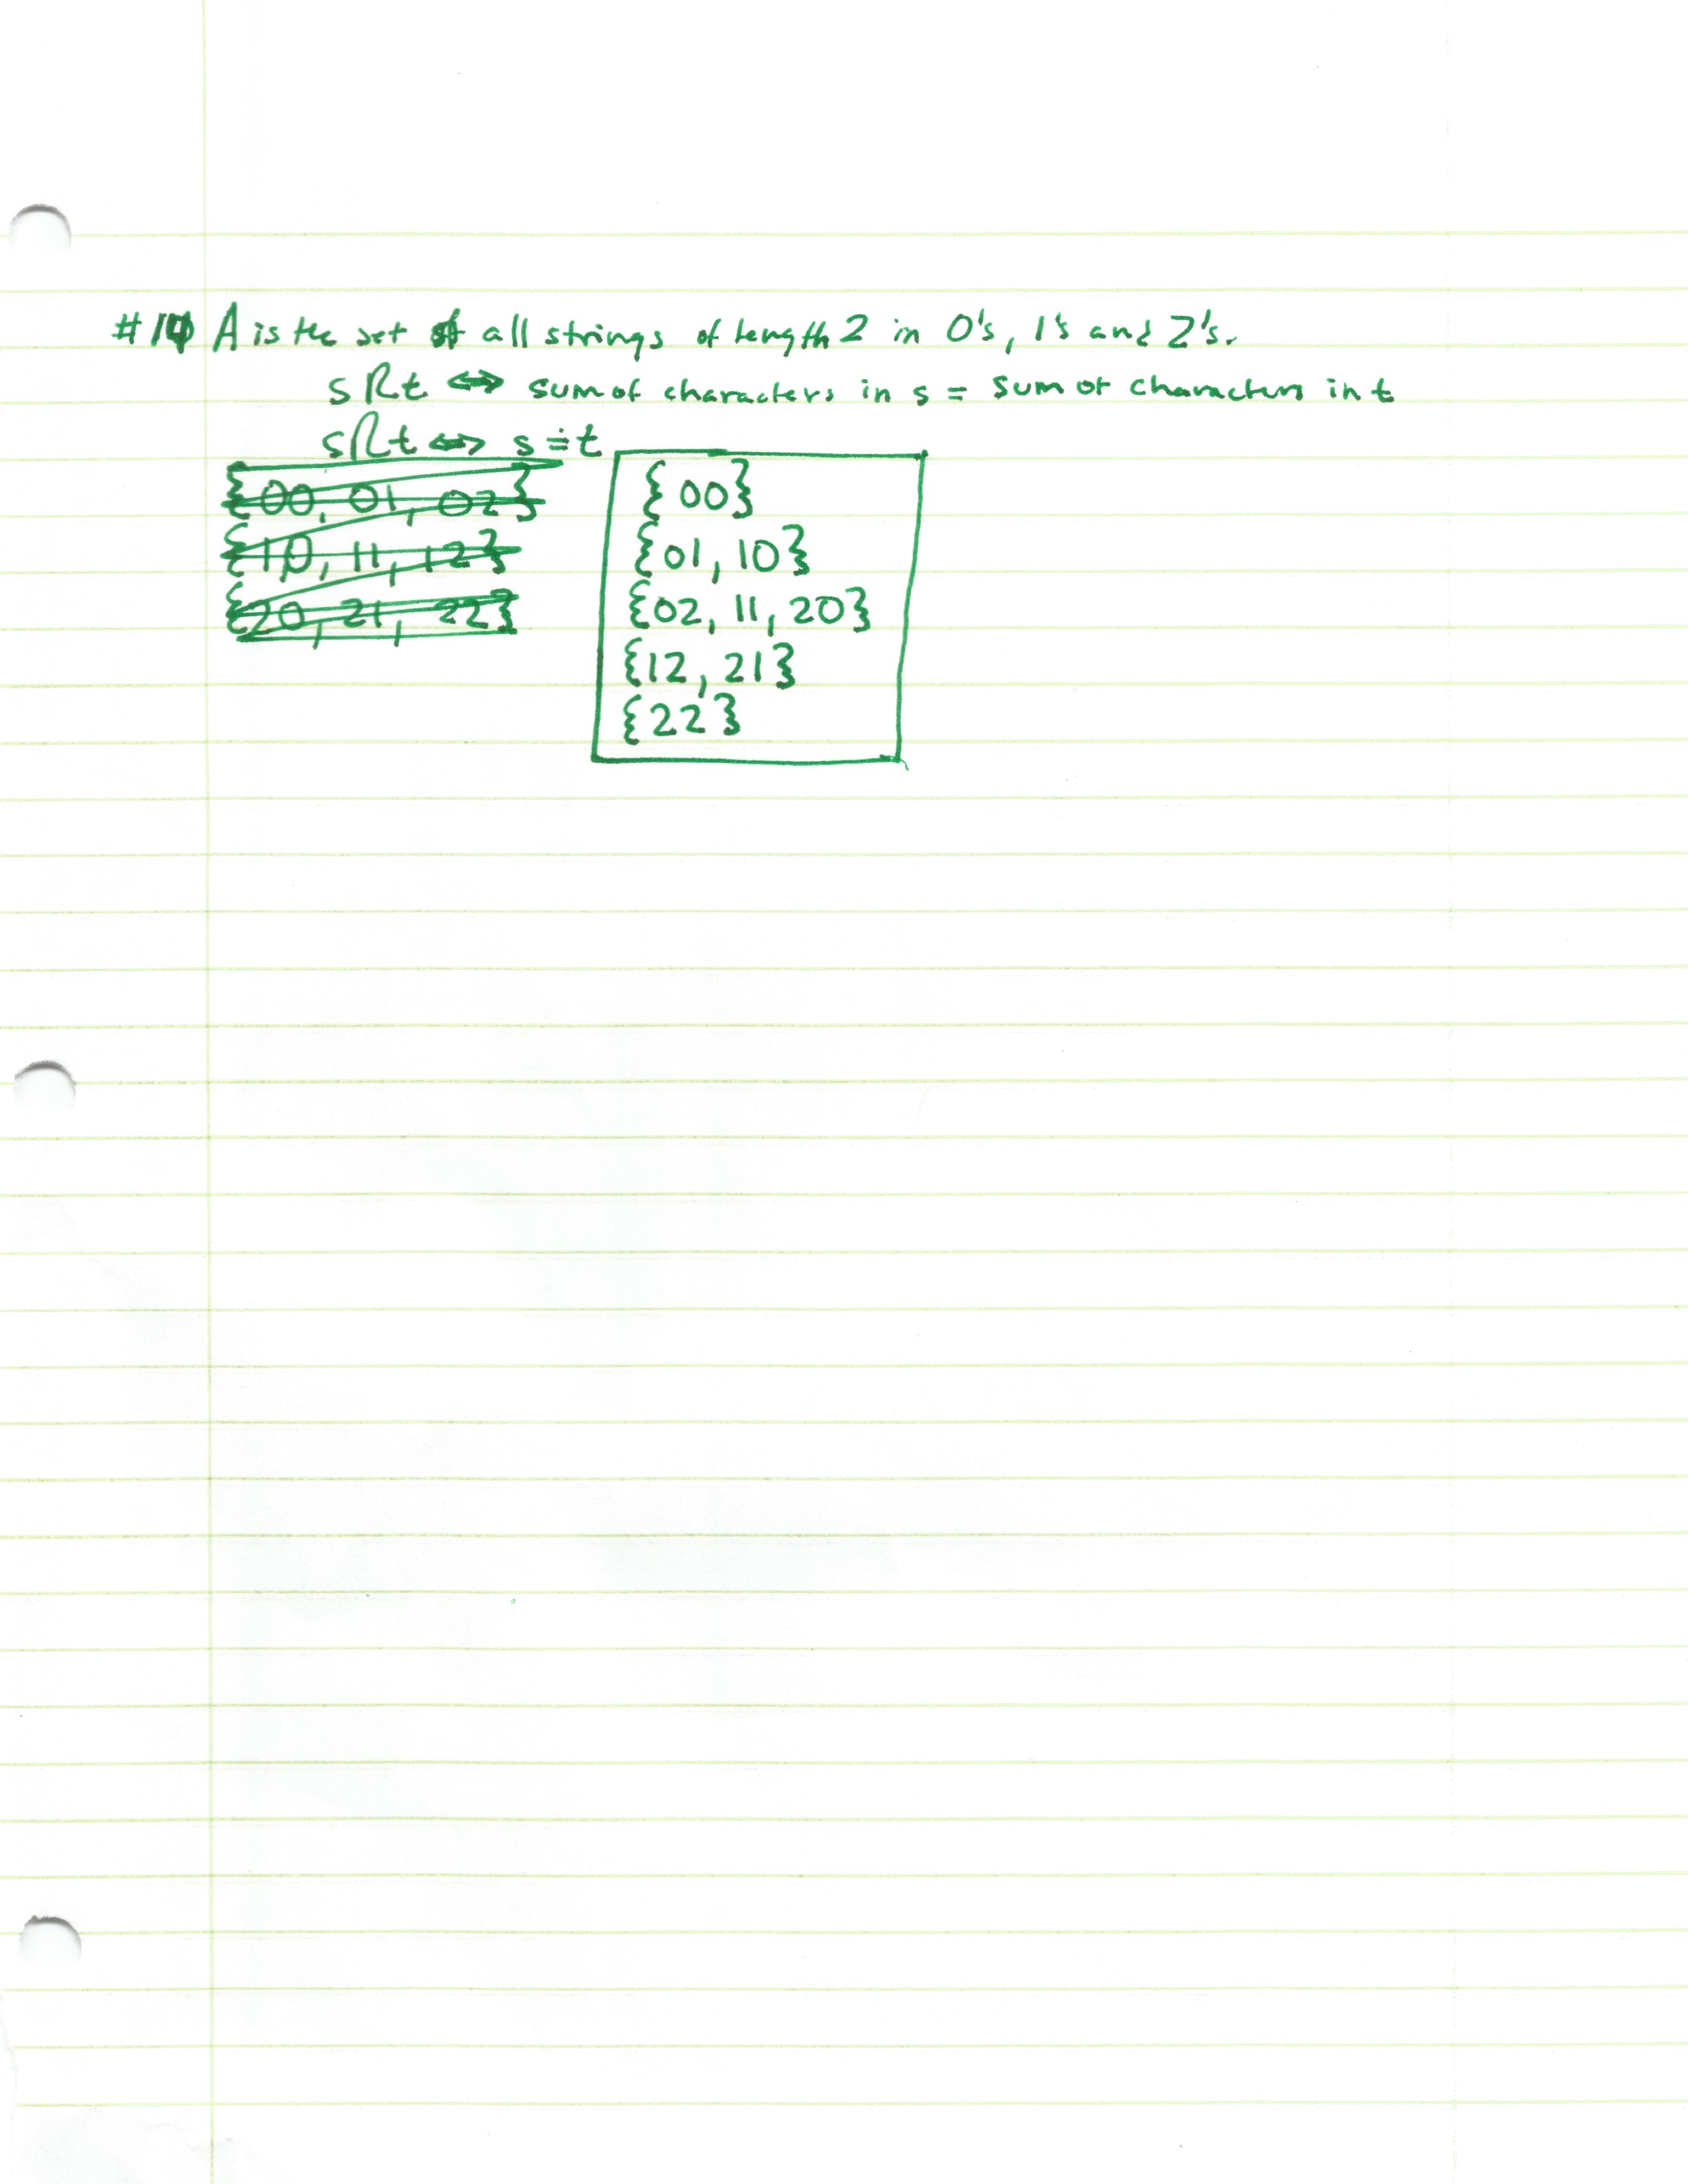 #10 A is the set of all strings of length 2 in 0's, 1's and 2's.
sRt ⇔ sum of characters in s = sum of characters in t
sRt ⇔ s = t
{00, 01, 02}
{10, 11, 12}
{20, 21, 22}
{00}
{01, 10}
{02, 11, 20}
{12, 21}
{22}